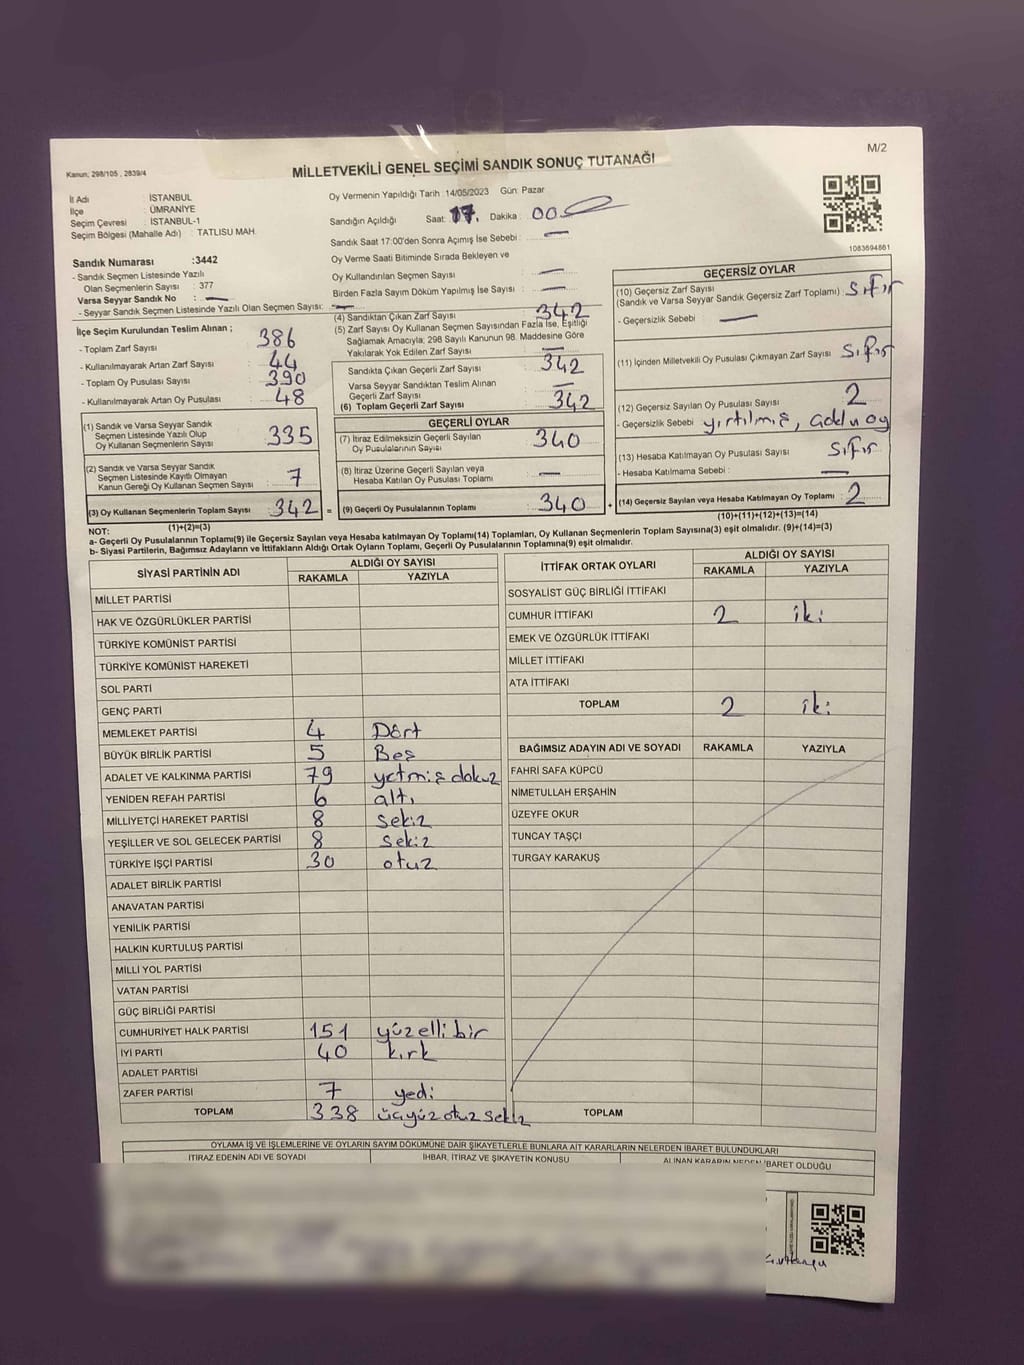 M/2
Kanun; 298/105 , 2839/4
MİLLETVEKİLİ GENEL SEÇİMİ SANDIK SONUÇ TUTANAĞI
İl Adı : İSTANBUL
İlçe : ÜMRANİYE
Seçim Çevresi : İSTANBUL-1
Seçim Bölgesi (Mahalle Adı) : TATLISU MAH.
Oy Vermenin Yapıldığı Tarih : 14/05/2023 Gün: Pazar
Sandığın Açıldığı Saat: 17. Dakika : 00
Sandık Saat 17:00'den Sonra Açımış İse Sebebi : —
Oy Verme Saati Bitiminde Sırada Bekleyen ve
Oy Kullandırılan Seçmen Sayısı : —
Birden Fazla Sayım Döküm Yapılmış İse Sayısı : —
1083694861
Sandık Numarası :3442
- Sandık Seçmen Listesinde Yazılı
Olan Seçmenlerin Sayısı : 377
Varsa Seyyar Sandık No : —
- Seyyar Sandık Seçmen Listesinde Yazılı Olan Seçmen Sayısı: —
İlçe Seçim Kurulundan Teslim Alınan ;
- Toplam Zarf Sayısı : 386
- Kullanılmayarak Artan Zarf Sayısı : 44
- Toplam Oy Pusulası Sayısı : 390
- Kullanılmayarak Artan Oy Pusulası : 48
(1) Sandık ve Varsa Seyyar Sandık
Seçmen Listesinde Yazılı Olup
Oy Kullanan Seçmenlerin Sayısı : 335
(2) Sandık ve Varsa Seyyar Sandık
Seçmen Listesinde Kayıtlı Olmayan
Kanun Gereği Oy Kullanan Seçmen Sayısı : 7
(3) Oy Kullanan Seçmenlerin Toplam Sayısı : 342 =
(1)+(2)=(3)
(4) Sandıktan Çıkan Zarf Sayısı : 342
(5) Zarf Sayısı Oy Kullanan Seçmen Sayısından Fazla İse, Eşitliği
Sağlamak Amacıyla; 298 Sayılı Kanunun 98. Maddesine Göre
Yakılarak Yok Edilen Zarf Sayısı : —
Sandıkta Çıkan Geçerli Zarf Sayısı : 342
Varsa Seyyar Sandıktan Teslim Alınan
Geçerli Zarf Sayısı : —
(6) Toplam Geçerli Zarf Sayısı : 342
GEÇERLİ OYLAR
(7) İtiraz Edilmeksizin Geçerli Sayılan
Oy Pusulalarının Sayısı : 340
(8) İtiraz Üzerine Geçerli Sayılan veya
Hesaba Katılan Oy Pusulası Toplamı : —
(9) Geçerli Oy Pusulalarının Toplamı : 340 +
GEÇERSİZ OYLAR
(10) Geçersiz Zarf Sayısı : sıfır
(Sandık ve Varsa Seyyar Sandık Geçersiz Zarf Toplamı)
- Geçersizlik Sebebi : —
(11) İçinden Milletvekili Oy Pusulası Çıkmayan Zarf Sayısı : sıfır
(12) Geçersiz Sayılan Oy Pusulası Sayısı : 2
- Geçersizlik Sebebi : yırtılmış,
(13) Hesaba Katılmayan Oy Pusulası Sayısı : sıfır
- Hesaba Katılmama Sebebi : —
(14) Geçersiz Sayılan veya Hesaba Katılmayan Oy Toplamı : 2
(10)+(11)+(12)+(13)=(14)
NOT:
a- Geçerli Oy Pusulalarının Toplamı(9) ile Geçersiz Sayılan veya Hesaba Katılmayan Oy Toplamı(14) Toplamları, Oy Kullanan Seçmenlerin Toplam Sayısına(3) eşit olmalıdır. (9)+(14)=(3)
b- Siyasi Partilerin, Bağımsız Adayların ve İttifakların Aldığı Ortak Oyların Toplamı, Geçerli Oy Pusulalarının Toplamına(9) eşit olmalıdır.
SİYASİ PARTİNİN ADI ALDIĞI OY SAYISI
RAKAMLA YAZIYLA
MİLLET PARTİSİ
HAK VE ÖZGÜRLÜKLER PARTİSİ
TÜRKİYE KOMÜNİST PARTİSİ
TÜRKİYE KOMÜNİST HAREKETİ
SOL PARTİ
GENÇ PARTİ
MEMLEKET PARTİSİ 4 Dört
BÜYÜK BİRLİK PARTİSİ 5 Beş
ADALET VE KALKINMA PARTİSİ 79 yetmiş dokuz
YENİDEN REFAH PARTİSİ 6 altı
MİLLİYETÇİ HAREKET PARTİSİ 8 sekiz
YEŞİLLER VE SOL GELECEK PARTİSİ 8 sekiz
TÜRKİYE İŞÇİ PARTİSİ 30 otuz
ADALET BİRLİK PARTİSİ
ANAVATAN PARTİSİ
YENİLİK PARTİSİ
HALKIN KURTULUŞ PARTİSİ
MİLLİ YOL PARTİSİ
VATAN PARTİSİ
GÜÇ BİRLİĞİ PARTİSİ
CUMHURİYET HALK PARTİSİ 151 yüzelli bir
İYİ PARTİ 40 kırk
ADALET PARTİSİ
ZAFER PARTİSİ 7 yedi
TOPLAM 338 üçyüz otuz sekiz
İTTİFAK ORTAK OYLARI ALDIĞI OY SAYISI
RAKAMLA YAZIYLA
SOSYALİST GÜÇ BİRLİĞİ İTTİFAKI
CUMHUR İTTİFAKI 2 iki
EMEK VE ÖZGÜRLÜK İTTİFAKI
MİLLET İTTİFAKI
ATA İTTİFAKI
TOPLAM 2 iki
BAĞIMSIZ ADAYIN ADI VE SOYADI RAKAMLA YAZIYLA
FAHRİ SAFA KÜPCÜ
NİMETULLAH ERŞAHİN
ÜZEYFE OKUR
TUNCAY TAŞÇI
TURGAY KARAKUŞ
TOPLAM
OYLAMA İŞ VE İŞLEMLERİNE VE OYLARIN SAYIM DÖKÜMÜNE DAİR ŞİKAYETLERLE BUNLARA AİT KARARLARIN NELERDEN İBARET BULUNDUKLARI
İTİRAZ EDENİN ADI VE SOYADI İHBAR, İTİRAZ VE ŞİKAYETİN KONUSU ALINAN KARARIN NEDEN İBARET OLDUĞU